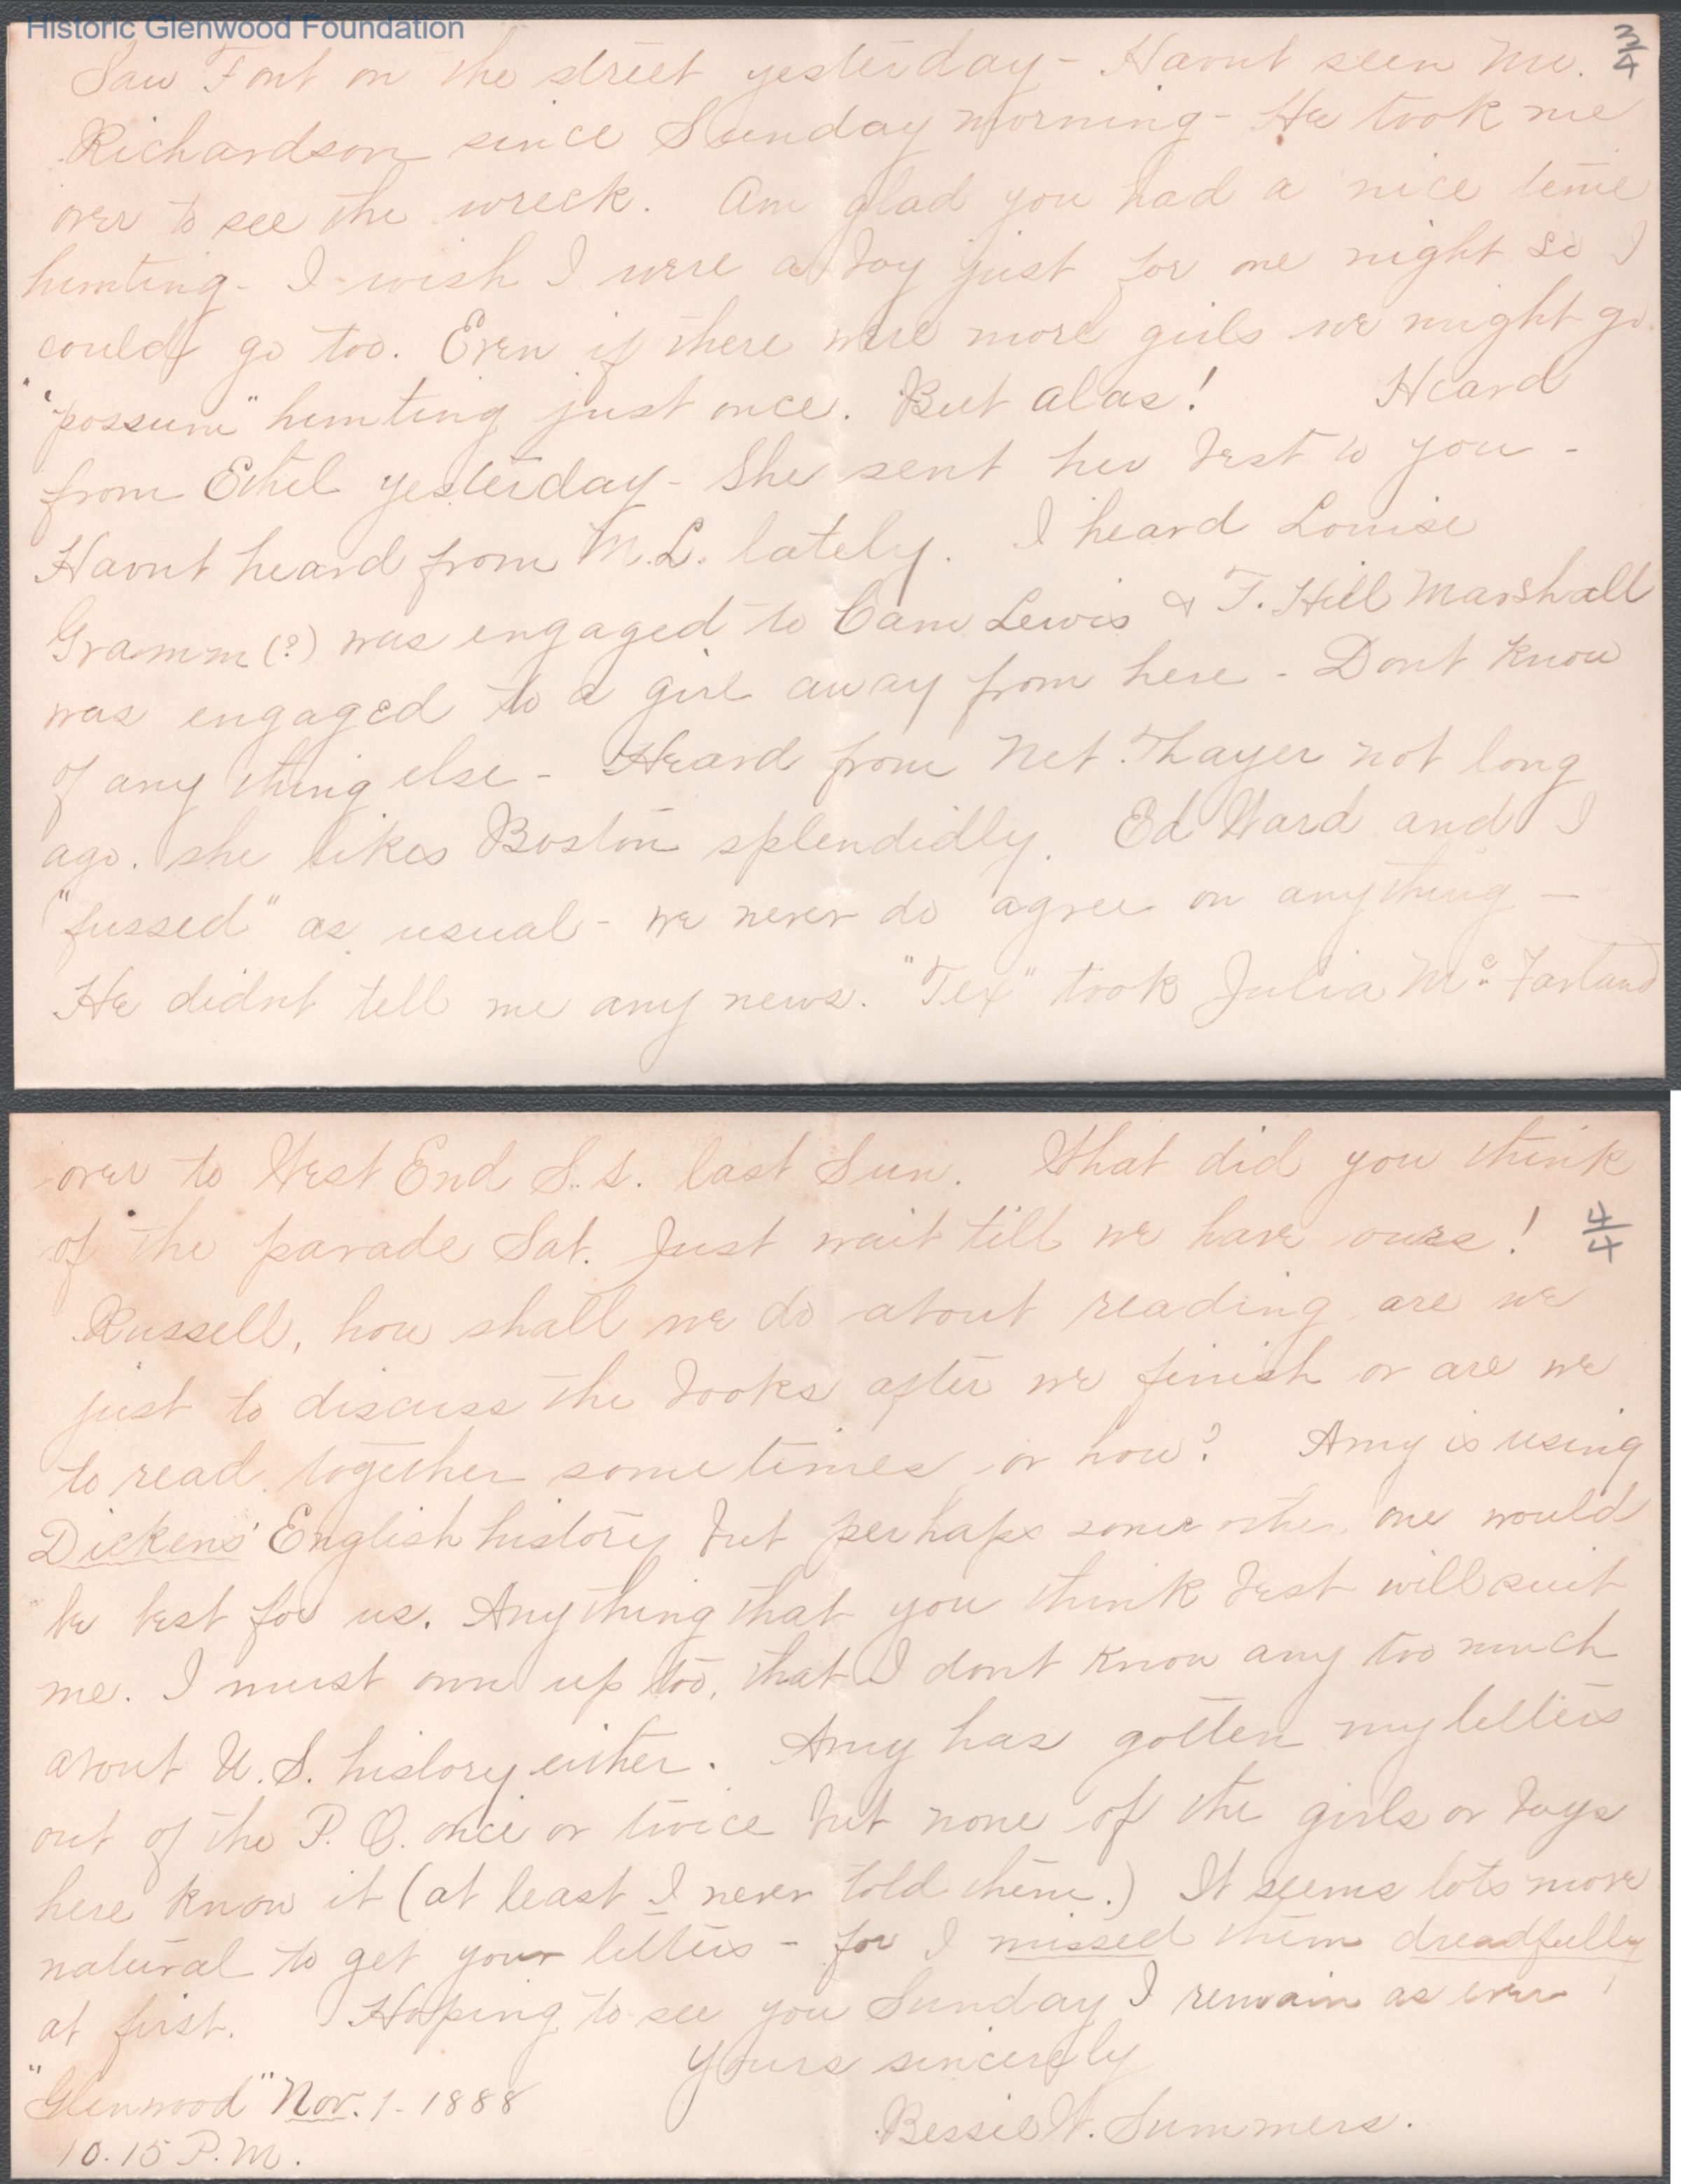 Historic Glenwood Foundation
3/4
Saw Font on the street yesterday - Havnt seen Mr.
Richardson since Sunday morning - He took me
over to see the wreck. Am glad you had a nice time
hunting - I wish I were a boy just for one night so I
could go too. Even if there were more girls we might go
"possum" hunting just once. But alas! Heard
from Ethel yesterday - She sent her best to you -
Havnt heard from M.L. lately. I heard Louise
Gramm (?) was engaged to Cam Lewis & T. Hill Marshall
was engaged to a girl away from here - Dont know
of any thing else - Heard from Net. Thayer not long
ago. she likes Boston splendidly. Ed Ward and I
"fussed" as usual - we never do agree on anything -
He didnt tell me any news. "Tex" took Julia Mc Farland
over to West End S.S. last Sun. What did you think
of the parade Sat. Just wait till we have ours!
4/4
Russell, how shall we do about reading are we
just to discuss the books after we finish or are we
to read together sometimes or how? Amy is using
Dickens' English history but perhaps some other one would
be best for us. Any thing that you think best will suit
me. I must own up too, that I dont know any too much
about U.S. history either. Amy has gotten my letters
out of the P.O. once or twice but none of the girls or boys
here know it (at least I never told them.) It seems lots more
natural to get your letters - for I missed them dreadfully
at first. Hoping to see you Sunday I remain as ever
Yours sincerely
"Glenwood" Nov. 1 - 1888
Bessie W. Summers.
10.15 P.M.